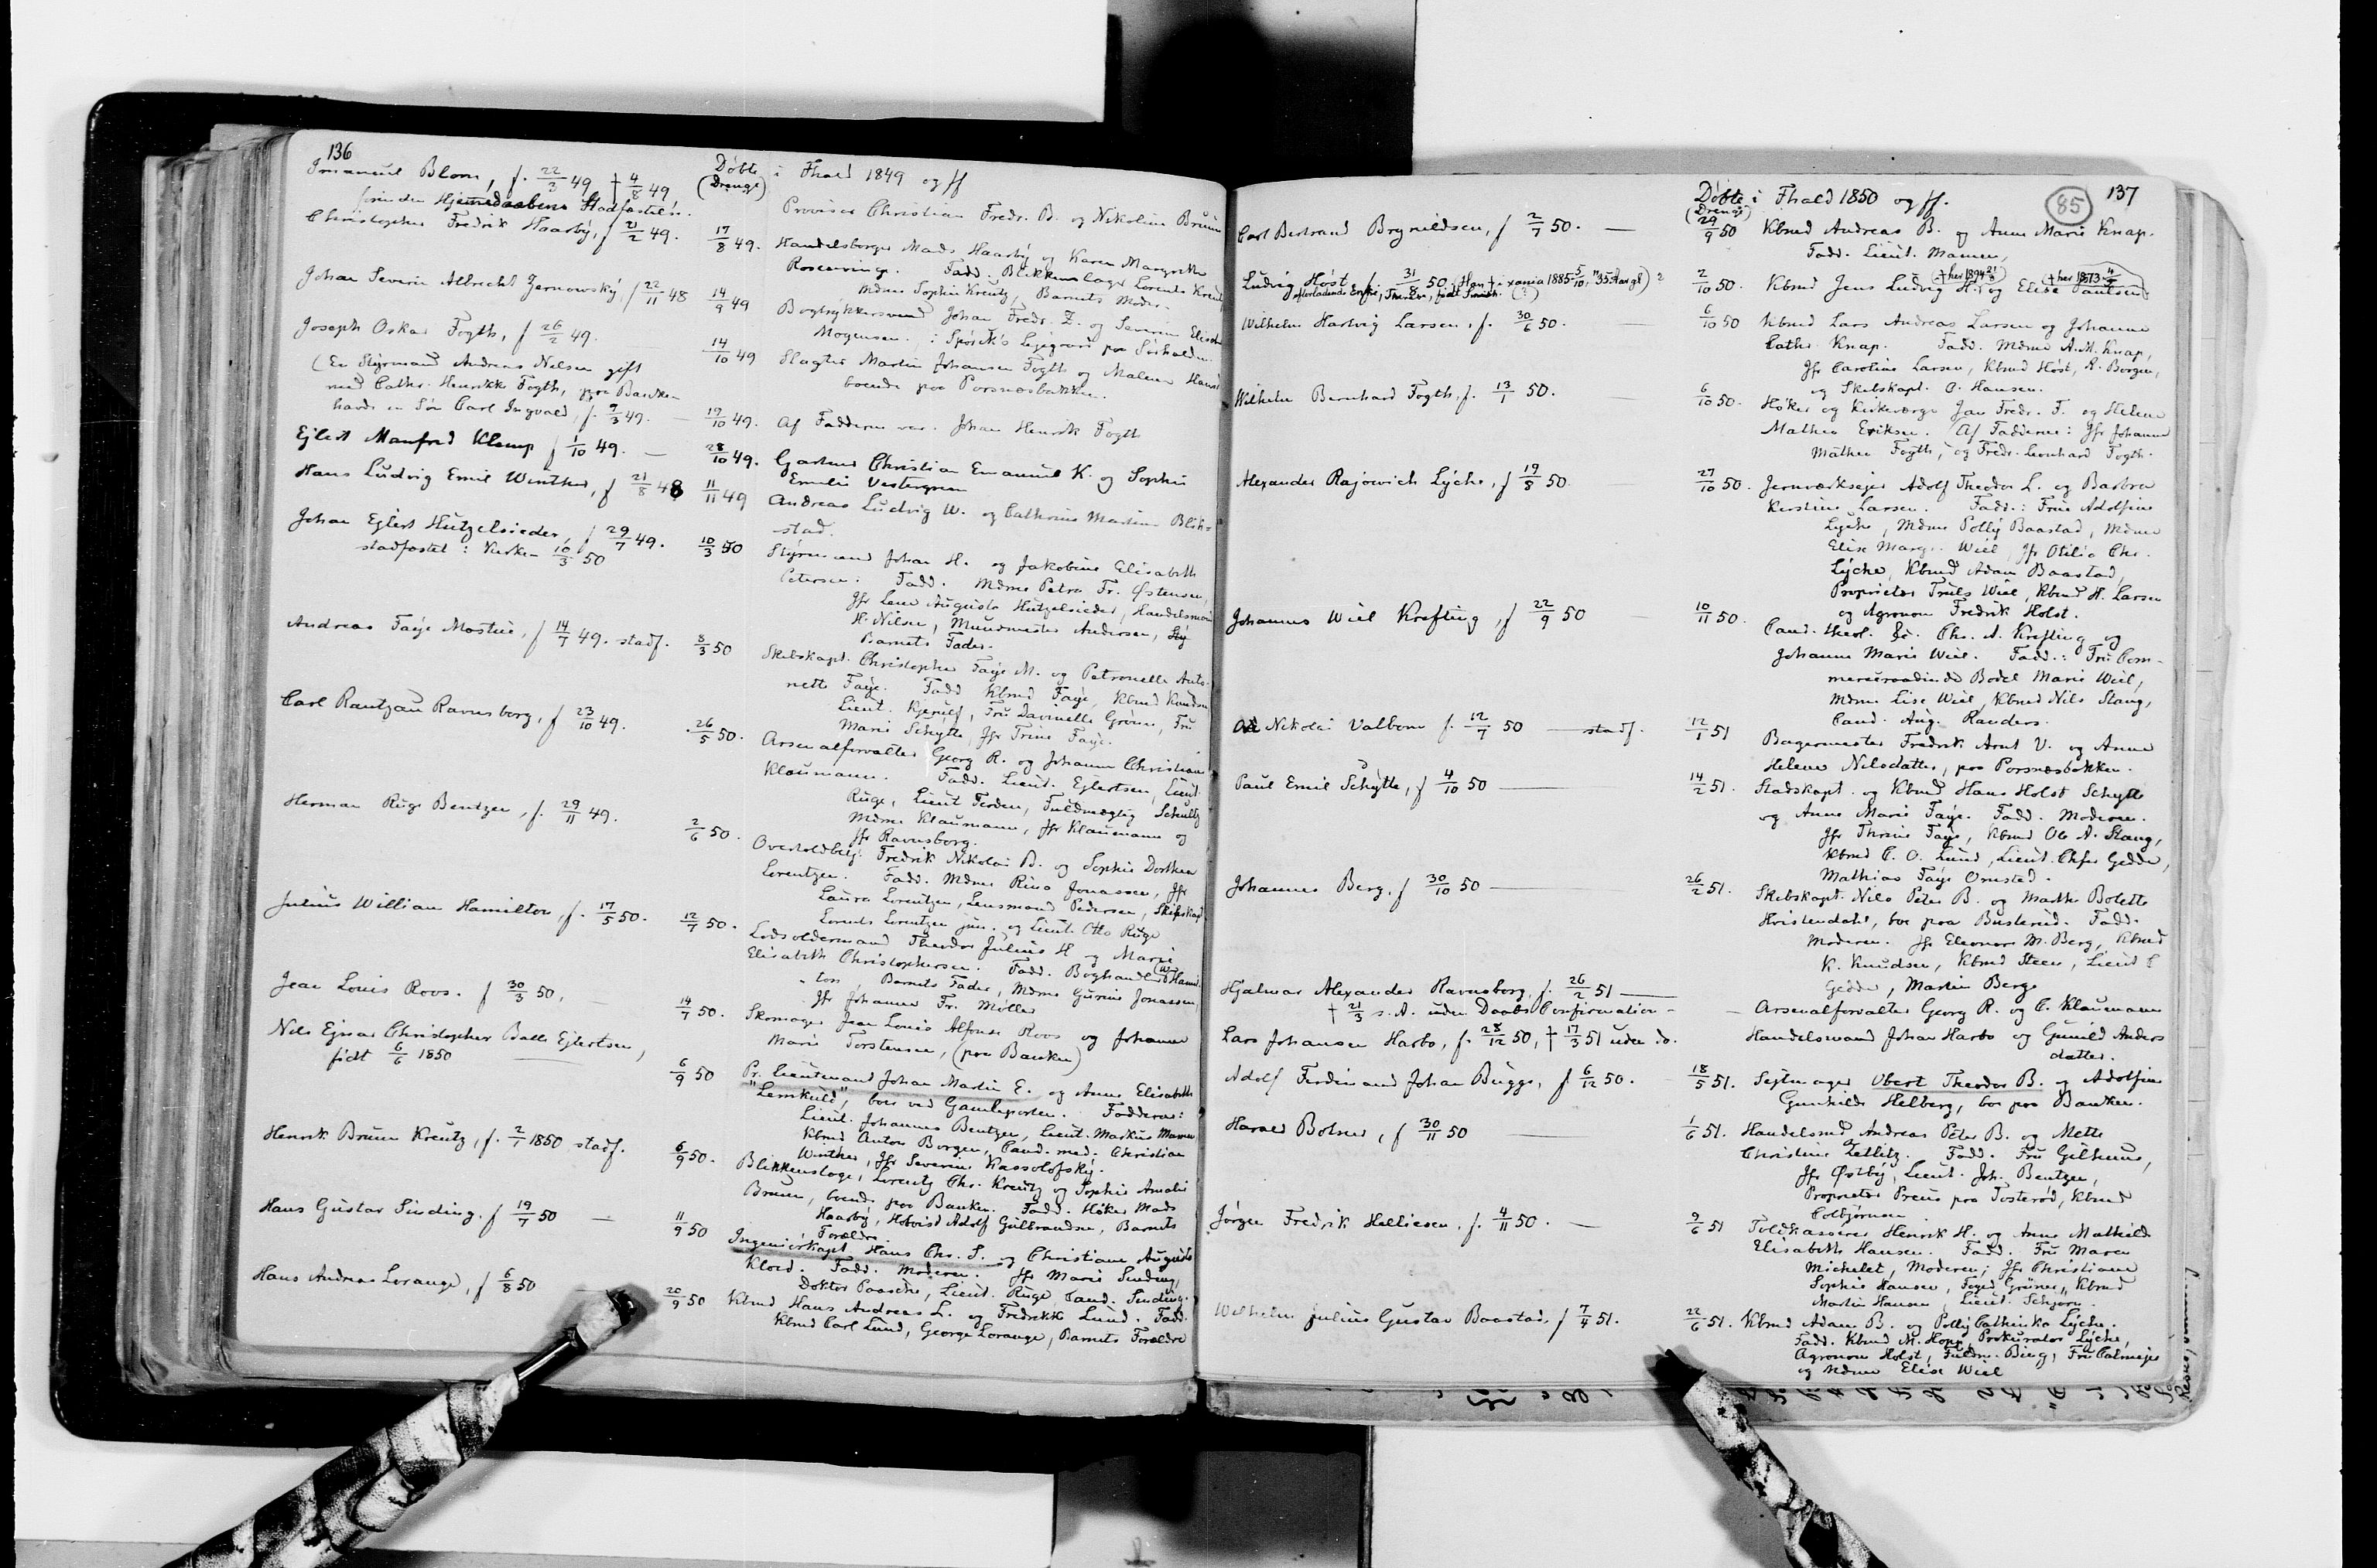 136
Døbte i Fhald 1849 og ff
(Drenge)
Immanuel Blom, f. 22/3 49 † 4/8 49
førinden Hjemmedaabens Stadfæstelse.
Provisor Christian Fredr. B. og Nikoline Bruun
Christopher Fredrik Haarby, f 21/2 49. 17/8 49. Handelsborger Mads Haarby og Karen Margrethe
Rosenvinge. Fadd. Blikkenslager Lorents Kreutz,
Mdme Sophie Kreutz, Barnets Moder.
Johan Severin Albrecht Zernowsky, f 22/11 48 14/9 49 Bogtrykkersvend Johan Fredr. Z. og Severine Elisab.
Mogensen. : Spørck's Leiegaard paa Sørhalden.
Joseph Oskar Fogth, f 26/2 49. 14/10 49 Slagter Martin Johansen Fogth og Malene Hansd
boende paa Porsnæsbakken.
(En Styrmand Andreas Nelsen gift
med Cathr. Henrikke Fogth, paa Banken
havde en Søn Carl Ingvald, f. 7/3 49. — 19/10 49. Af Fadderne var. Johan Henrik Fogth
Ejlert Manfred Klemp f 1/10 49. — 28/10 49. Gartner Christian Emanuel K. og Sophie
Emilie Vestergren
Hans Ludvig Emil Winther, f 21/8 48 11/11 49 Andreas Ludvig W. og Cathrine Martine Blik-
stad.
Johan Ejlert Hutzelsieder, f 29/7 49. 10/3 50 Styrmand Johan H. og Jakobine Elisabeth
stadfæstet i Kirken 10/3 50
Petersen. Fadd. Mdme Petra Fr. Østensen,
Jfr Lene Augusta Hutzelsieder, Handelsmand
H. Nilsen, Mundmester Andersen,
Barnets Fader.
Andreas Faye Mostue, f 14/7 49. stadf. 8/3 50 Skibskapt. Christopher Faye M. og Petronelle Anto-
nette Faye. Fadd Kbmd Faye, Kbmd Knudsen
Lieut. Kjerulf, Fru Davinelle Grøner, Fru
Marie Schytte, Jfr Trine Faye.
Carl Rantzau Ravnsborg, f 23/10 49. 26/5 50. Arsenalforvalter Georg R. og Johanne Christiane
Klaumann. Fadd. Lieut. Ejlertsen, Lieut.
Ruge, Lieut Feoden, Fuldmægtig Schultz
Mdme Klaumann, Jfr Klaumann og
Jfr Ravnsborg.
Herman Ruge Bentzen, f. 29/11 49. 2/6 50. Overtoldbetj. Fredrik Nikolai B. og Sophie Dorthea
Lorentzen. Fadd. Mdme Rina Jonassen, Jfr
Laura Lorentzen, Lensmand Pedersen, Skibskapt
Lorents Lorentzen jun. og Lieut. Otto Ruge
Julius William Hamilton, f. 17/5 50. 12/7 50. Lodsoldermand Theodor Julius H og Marie
Elisabeth Christophersen. Fadd. Boghandl. W. Hamil-
ton, Barnets Fader, Mdme Gurine Jonassen,
Jfr Johanne Fr. Møller
Jean Louis Roos. f 30/3 50, — 14/7 50. Skomager Jean Louis Alfonse Roos og Johanne
Marie Torstensen, (paa Banken)
Nils Ejnar Christopher Balle Ejlertsen,
født 6/6 1850 6/9 50 Pr. Lieutenand Johan Martin E. og Anne Elisabeth
"Lemkuld", boer ved Gamleporten. Fadderne:
Lieut. Johannes Bentzen, Lieut. Markus Mamen
Kbmd Anton Borgen, Cand. med. Christian
Winther, Jfr Severine Wassolofsky.
Henrik Bruun Kreutz, f. 2/1 1850 stadf. 6/9 50. Blikkenslager Lorentz Chr. Kreutz og Sophie Amalie
Bruun, boende paa Banken. Fadd. Høker Mads
Haarby, Hoboist Adolf Gulbrandsen, Barnets
Forældre.
Hans Gustav Sinding. f 19/7 50 — 11/9 50 Ingeniørkapt. Hans Chr. S. og Christiane Augusta
Kloed. Fadd. Moderen. Jfr Marie Sinding,
Doktor Paasche, Lieut. Ruge, Cand. Sinding.
Hans Andreas Lorange, f 6/8 50 20/9 50 Kbmd Hans Andreas L. og Fredrikke Lund. Fadd.
Kbmd Carl Lund, George Lorange, Barnets Forældre
137
(85)
Døbte i Fhald 1850 og ff.
(Drenge)
Carl Bertrand Brynildsen, f 2/7 50. — 29/9 50 Kbmd Andreas B. og Anne Marie Knap.
Fadd. Lieut. Mamen,
Ludvig Høst, f 31/8 50. 2/10 50. Kbmd Jens Ludvig H. og Elise Paulsen
(† her 1894 21/3) († her 1873 4/5)
Wilhelm Hartvig Larsen, f. 30/6 50. — 6/10 50 Kbmd Lars Andreas Larsen og Johanne
Cathr. Knap. Fadd. Mdme A. M. Knap,
Jfr Caroline Larsen, Kbmd Høst, A. Borgen,
og Skibskapt. O. Hansen.
Wilhelm Bernhard Fogth, f. 13/1 50. — 6/10 50. Høker og Kirkeværge Jan Fredr. F. og Helene
Mathea Eriksen. Af Fadderne: Jfr Johanne
Mathea Fogth, og Fredr. Leonhard Fogth.
Alexander Rajowich Lyche, f 19/8 50. 27/10 50. Jernværksejer Adolf Theodor L. og Barbra
Kirstine Larsen. Fadd.: Frue Adolfine
Lyche, Mdme Polly Baastad, Mdme
Elise Margr. Wiel, Jfr Otilia Chr.
Lyche, Kbmd Adam Baastad,
Proprietær Truls Wiel, Kbmd H. Larsen
og Agronom Fredrik Holst.
Johannes Wiel Krefting, f 22/9 50 — 10/11 50. Cand. theol. Chr. A. Krefting og
Johanne Marie Wiel. Fadd.: Fru Com-
merceraadinde Bodel Marie Wiel,
Mdme Lise Wiel, Kbmd Nils Stang,
Cand. Aug. Randers.
Ole Nikolai Valbom f. 12/7 50 — stadf. 12/1 51 Bagermester Fredrik Arnt V. og Anne
Helene Nilsdatter, paa Porsnæsbakken.
Paul Emil Schytte, f 4/10 50 — 14/2 51. Stadskapt. og Kbmd Hans Holst Schytte
og Anne Marie Faye. Fadd. Moderen.
Jfr Thrine Faye, Kbmd Ole A. Stang,
Kbmd C. O. Lund, Lieut. Chfr Gedde,
Mathias Faye Omsted.
Johannes Berg, f 30/10 50 — 26/2 51. Skibskapt. Nils Peter B. og Marthe Bolette
Hvistendahl, boe paa Busterud. Fadd.
Moderen. Jfr Eleonore M. Berg, Kbmd
K. Knudsen, Kbmd Steen, Lieut C
Gedde, Martin Berg.
Hjalmar Alexander Ravnsborg, f. 26/2 51 —
† 21/3 s. A. uden Daabs Confirmation — Arsenalforvalter Georg R. og C. Klaumann
Lars Johansen Harbo, f. 28/12 50, † 17/3 51 uden do. Handelsmand Johan Harbo og Gunild Anders
datter.
Adolf Ferdinand Johan Bugge, f 6/12 50. — 18/5 51. Sejlmager Obert Theodor B. og Adolfine
Gunhilde Helberg, boe paa Banken.
Harald Bolner, f 30/11 50 — 1/6 51. Handelsmd Andreas Peter B. og Mette
Christine Zetlitz. Fadd. Fru Gilhuus,
Jfr Østby, Lieut. Joh. Bentzen,
Proprietær Preus paa Tosterød, Kbmd
Colbjørnsen
Jørgen Fredrik Helliesen, f. 4/11 50. — 9/6 51 Toldkasserer Henrik H. og Anne Mathilde
Elisabeth Hansen. Fadd. Fru Maren
Michelet, Moderen, Jfr Christiane
Sophie Hansen, Foged Grüner, Kbmd
Martin Hansen, Lieut. Schjørn.
Wilhelm Julius Gustav Baastad, f 7/4 51. 22/6 51. Kbmd Adam B. og Polly Cathinka Lyche.
Fadd. Kbmd M. Hopp, Prokurator Lyche,
Agronom Holst, Fuldm. Bing, Fru Catmejer
og Mdme Elise Wiel